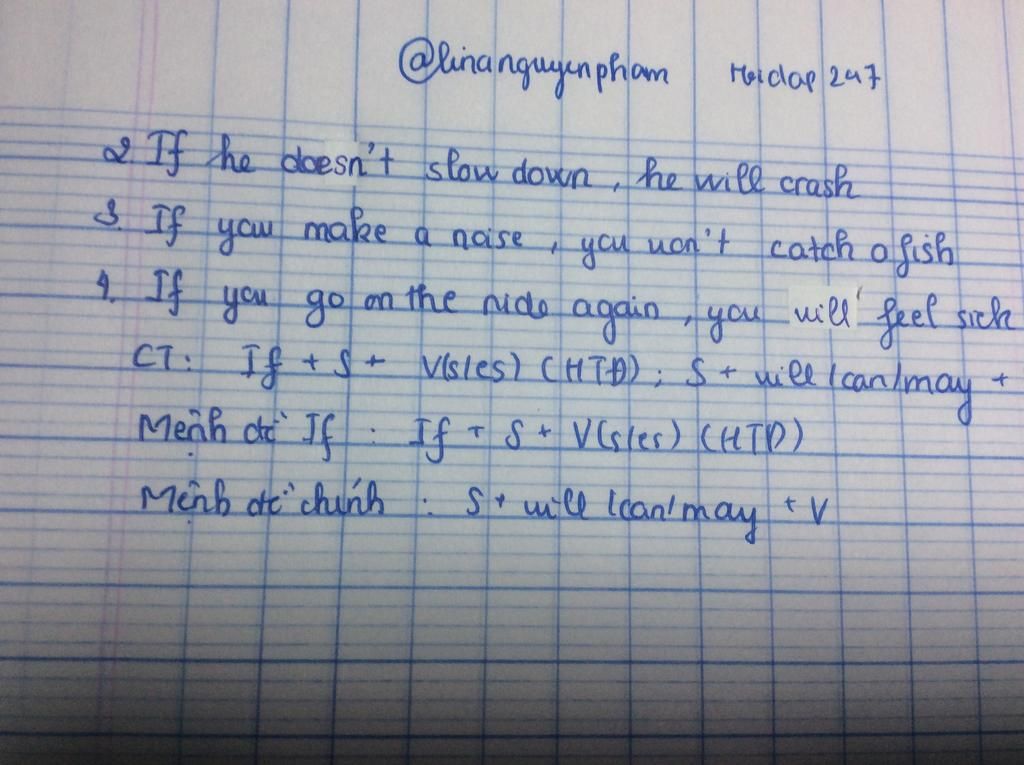 @linanguyenpham Hoidap 247
2 If he doesn't slow down, he will crash
3. If you make a noise, you won't catch a fish
4. If you go on the ride again, you will feel sick
CT: If + S + V(s/es) (HTĐ); S + will/can/may +
Mệnh đề If : If + S + V(s/es) (HTĐ)
Mệnh đề chính : S + will/can/may + V